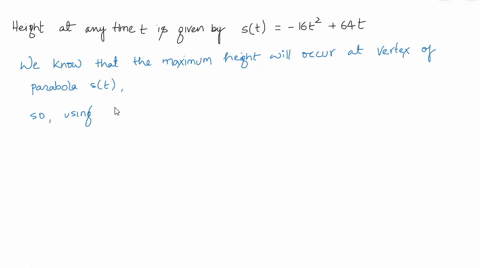 Height at any time t is given by s(t) = -16t² + 64t
We know that the maximum height will occur at vertex of
parabola s(t),
so, using